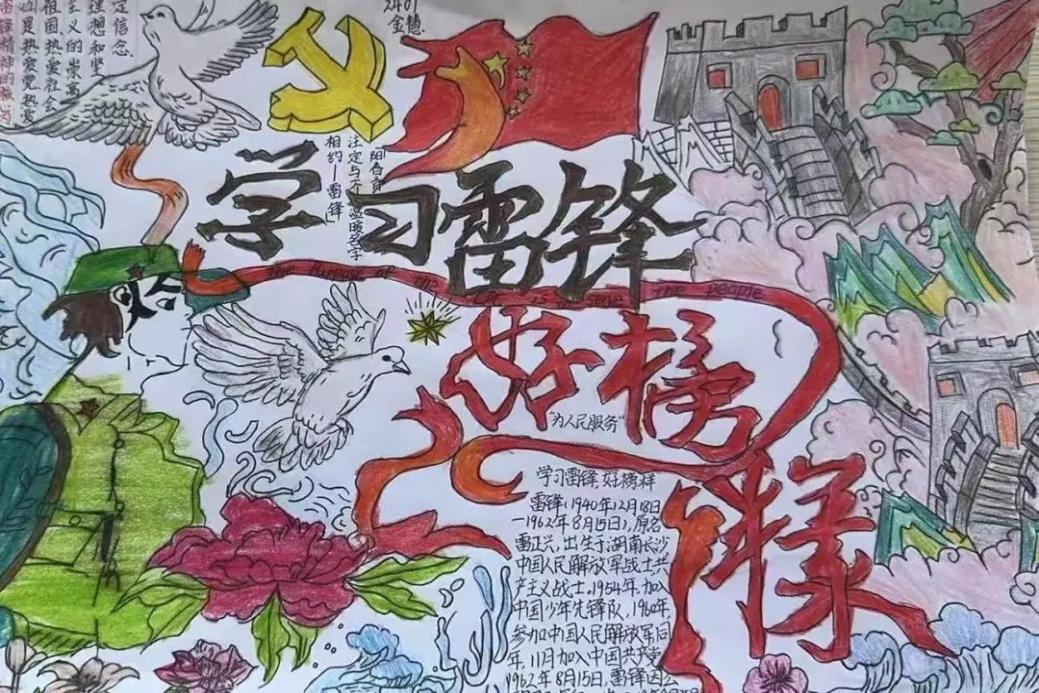 雷锋精神的
是热爱党热爱
祖国热爱社会
主义的崇高
理想和坚
定信念.
2401
金慧
相约—雷锋」
学习雷锋
The Purpose of the CPC is to serve the people
好榜
"为人民服务"
样
学习雷锋,好榜样
雷锋(1940年12月18日
—1962年8月15日),原名
雷正兴,出生于湖南长沙
中国人民解放军战士共
产主义战士。1954年,加入
中国少年先锋队,1960年,
参加中国人民解放军同
年,11月加入中国共产党
1962年8月15日,雷锋因公